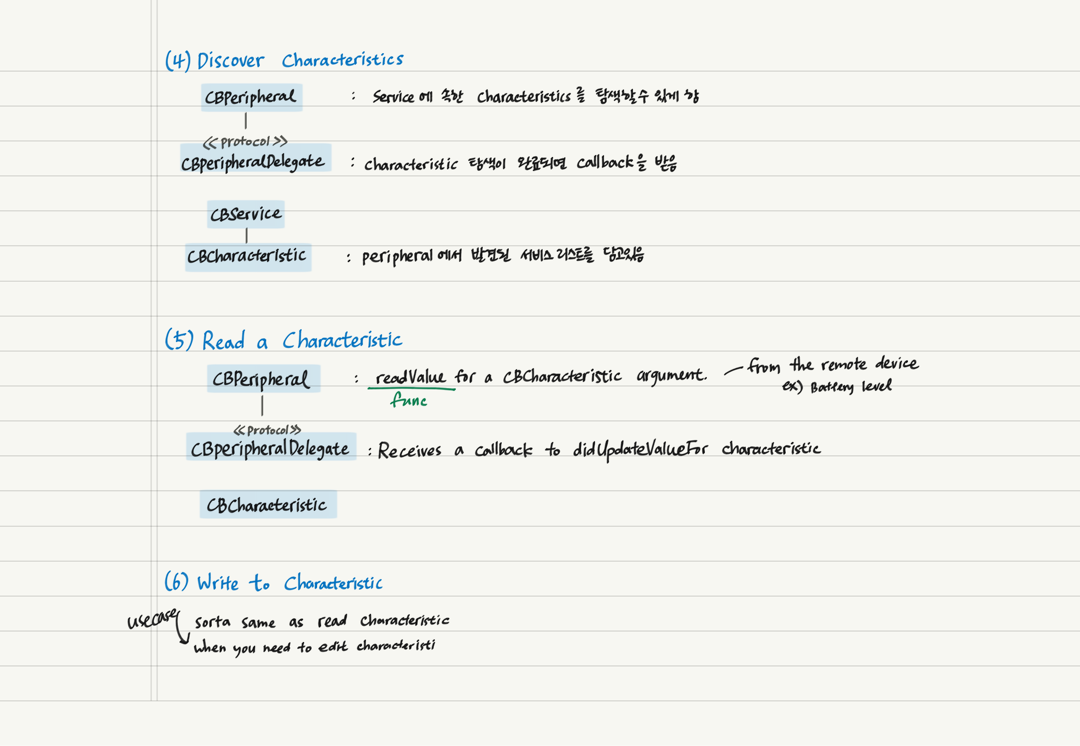 (4) Discover Characteristics
CBPeripheral : Service에 속한 Characteristics를 탐색할수 있게 함
<<Protocol>>
CBperipheralDelegate : characteristic 탐색이 완료되면 callback을 받음
CBService
CBCharacteristic : peripheral에서 발견된 서비스 리스트를 담고있음
(5) Read a Characteristic
CBPeripheral : readValue for a CBCharacteristic argument. — from the remote device
ex) Battery level
func
<<Protocol>>
CBperipheralDelegate : Receives a callback to didUpdateValueFor characteristic
CBCharacteristic
(6) Write to Characteristic
usecase sorta same as read characteristic
when you need to edit characteristi